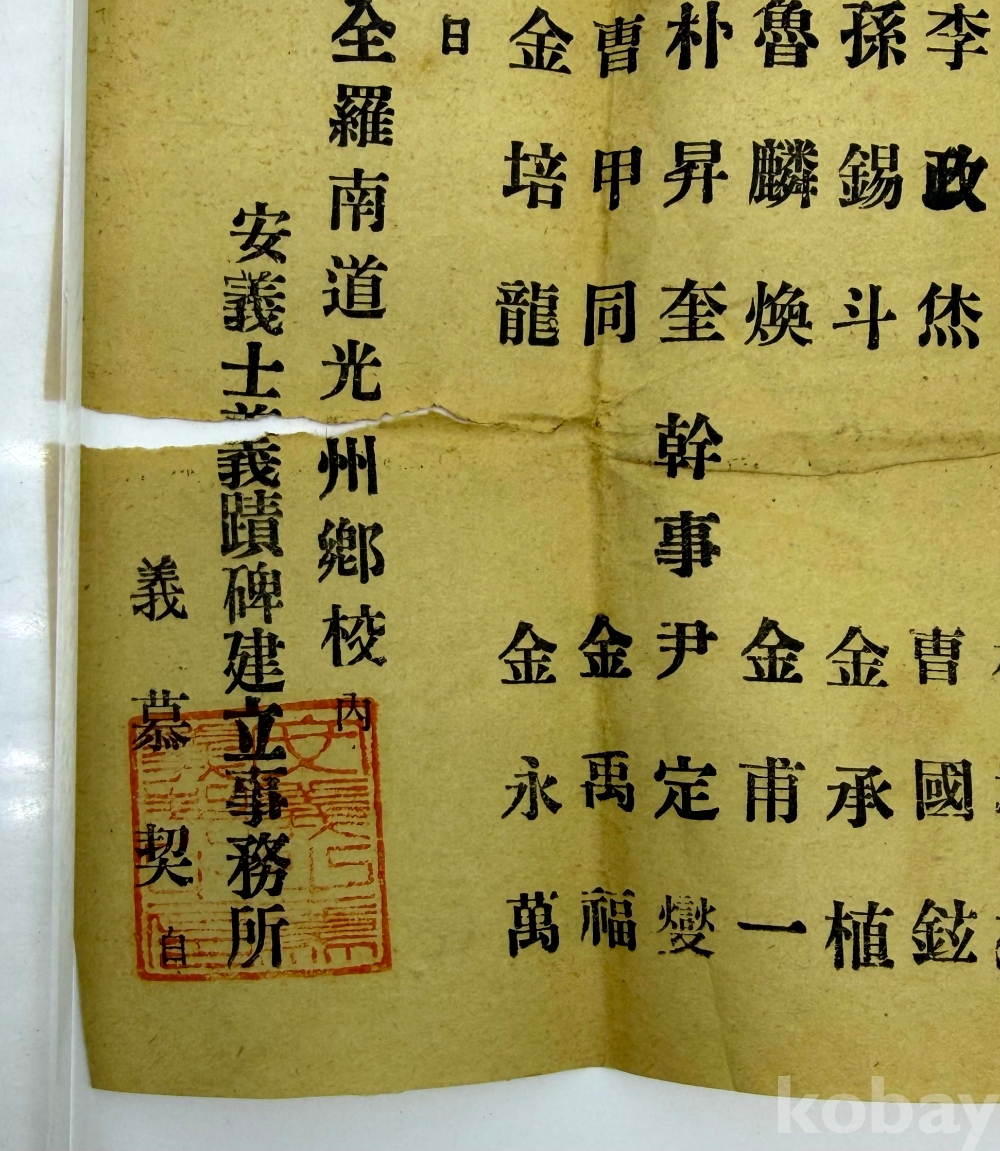 李政烋 曹國鉉
孫錫斗 金承植
魯麟煥 金甫一
朴昇奎 幹事 尹定燮
曹甲同 金禹福
金培龍 金永萬
日
全羅南道光州鄕校內
安義士義蹟碑建立事務所
義慕契自
kobay